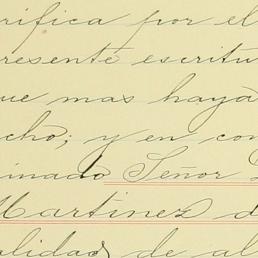 rifica por el
presente escritu
que mas haya
cho; y en con
inado Señor D
Martinez d
alidad de al